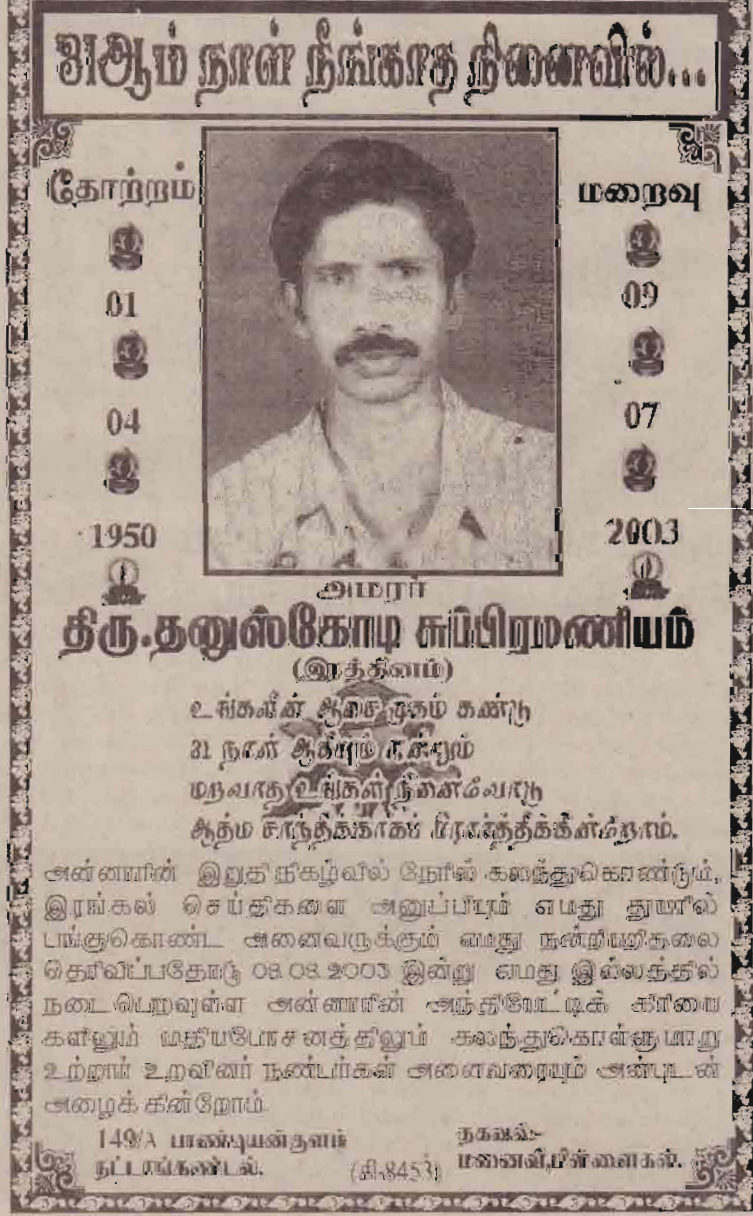 31ஆம் நாள் நீங்காத நினைவில்...
தோற்றம்
01
04
1950
மறைவு
09
07
2003
அமரர்
திரு.தனுஸ்கோடி சுப்பிரமணியம்
(இரத்தினம்)
உங்களின் ஆசை முகம் கண்டு
31 நாள் ஆகியும் என்றும்
மறவாத உங்கள் நினைவோடு
ஆத்ம சாந்திக்காகப் பிரார்த்திக்கின்றோம்.
அன்னாரின் இறுதி நிகழ்வில் நேரில் கலந்துகொண்டும்,
இரங்கல் செய்திகளை அனுப்பியும் எமது துயரில்
பங்குகொண்ட அனைவருக்கும் எமது நன்றியறிதலை
தெரிவிப்பதோடு 08.08.2003 இன்று எமது இல்லத்தில்
நடைபெறவுள்ள அன்னாரின் அந்தியேட்டிக் கிரியை
களிலும் மதியபோசனத்திலும் கலந்துகொள்ளுமாறு
உற்றார் உறவினர் நண்பர்கள் அனைவரையும் அன்புடன்
அழைக்கின்றோம்.
149/A பாண்டியன்குளம்
நட்டாங்கண்டல்.
(கி-8453)
தகவல்:-
மனைவி,பிள்ளைகள்.